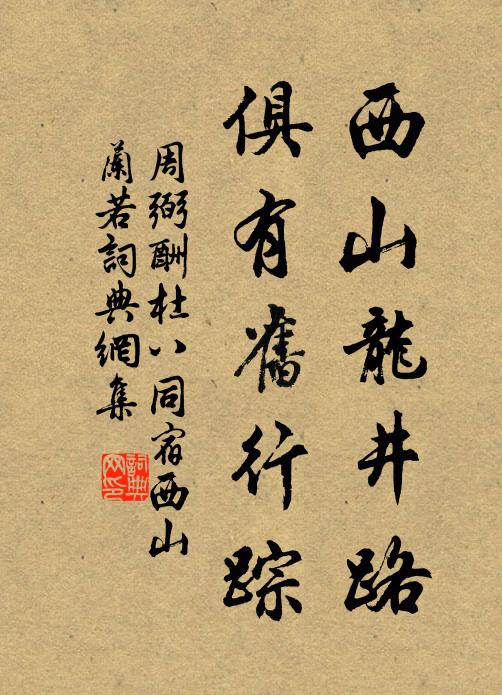 西山龍井路
俱有舊行踪
周弼酬杜八同宿西山
蘭若詞典網集
詞典
网印